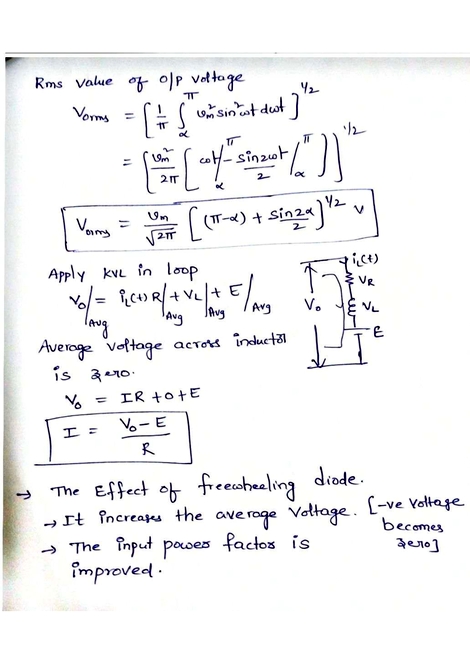 Rms value of o/p voltage
Vorms = [ 1/π ∫α^π Vm² sin²ωt dωt ]^1/2
= [ Vm²/2π [ ωt/α^π - sin2ωt/2 /α^π ] ]^1/2
Vorms = Vm/√2π [ (π-α) + sin2α/2 ]^1/2 V
Apply KVL in loop
Vo/Avg = iL(t) R/Avg + VL/Avg + E/Avg
iL(t)
VR
Vo
VL
E
Average voltage across inductor
is zero.
Vo = IR + 0 + E
I = Vo - E / R
→ The Effect of freewheeling diode.
→ It increases the average voltage. [-ve voltage
becomes
zero]
→ The input power factor is
improved.